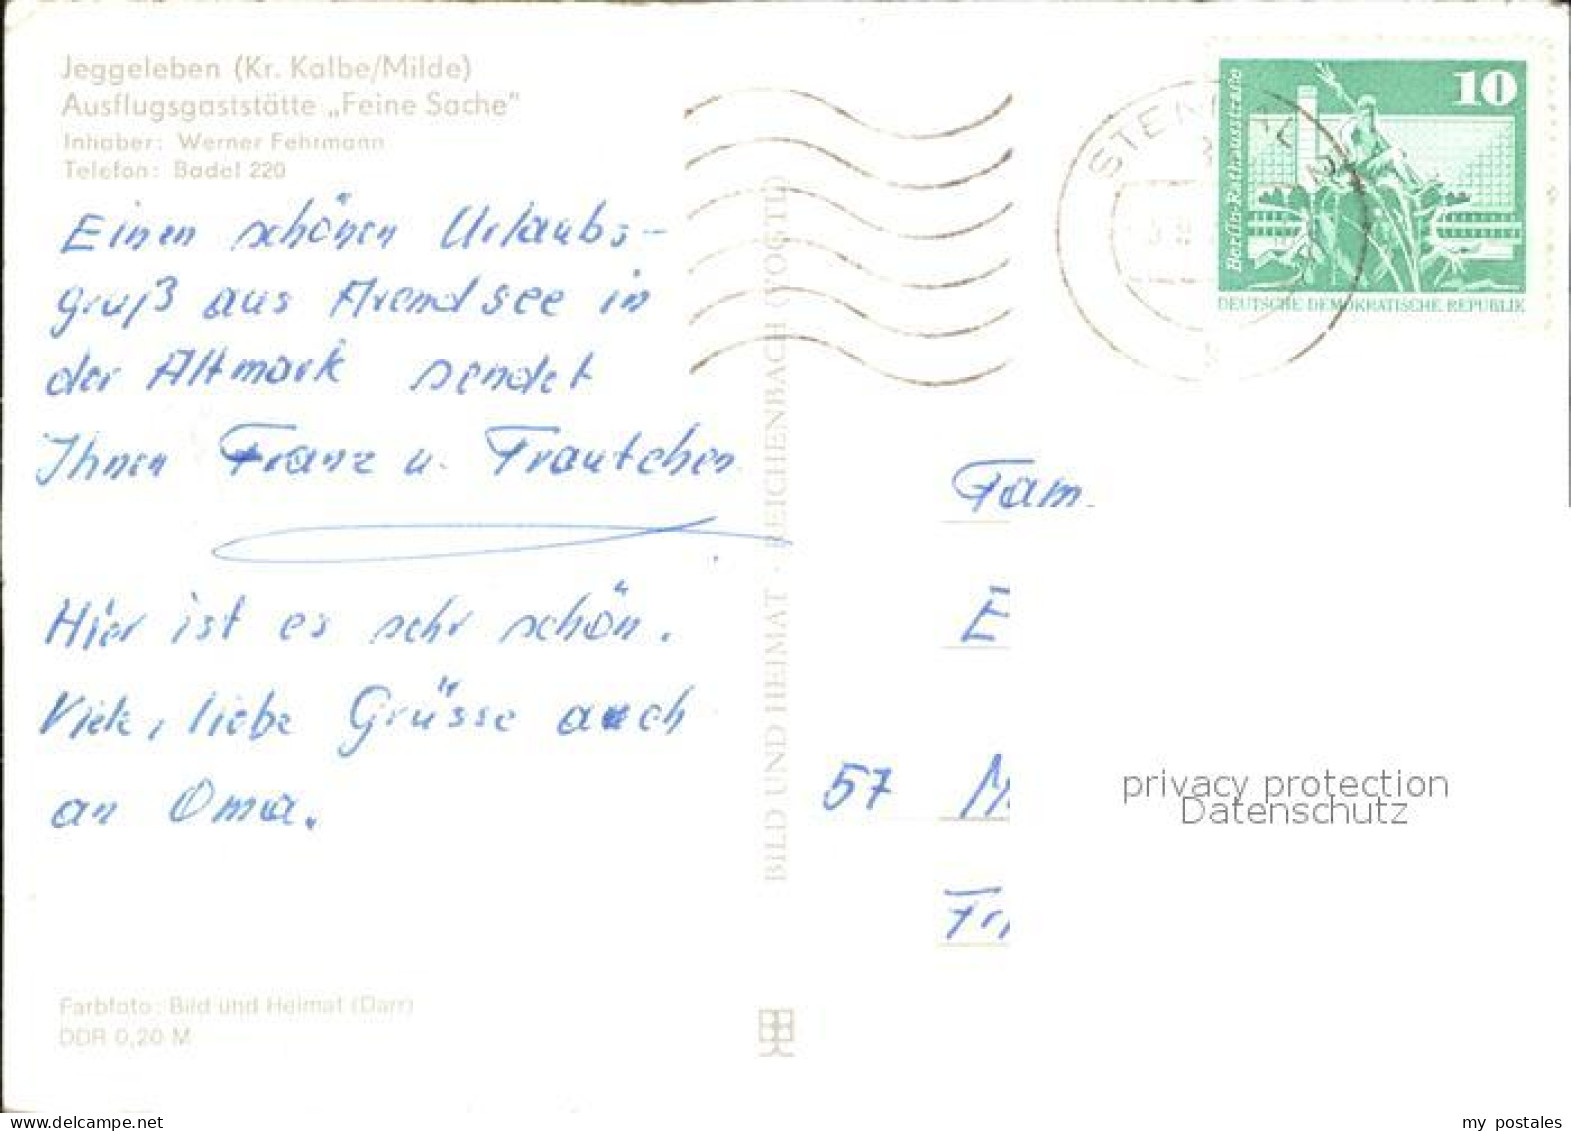 Jeggeleben (Kr. Kalbe/Milde)
Ausflugsgaststätte „Feine Sache"
Inhaber: Werner Fehrmann
Telefon: Badel 220
Einen schönen Urlaubs-
gruß aus Arendsee in
der Altmark sendet
Ihnen Franz u. Trautchen
Hier ist es sehr schön.
Viele, liebe Grüsse auch
an Oma.
Farbfoto: Bild und Heimat (Darr)
DDR 0,20 M
BILD UND HEIMAT · REICHENBACH (VOGTL)
STENDAL
10
Berlin-Rathausstraße
DEUTSCHE DEMOKRATISCHE REPUBLIK
Fam.
E
57 M
privacy protection
Datenschutz
my postales
www.delcampe.net